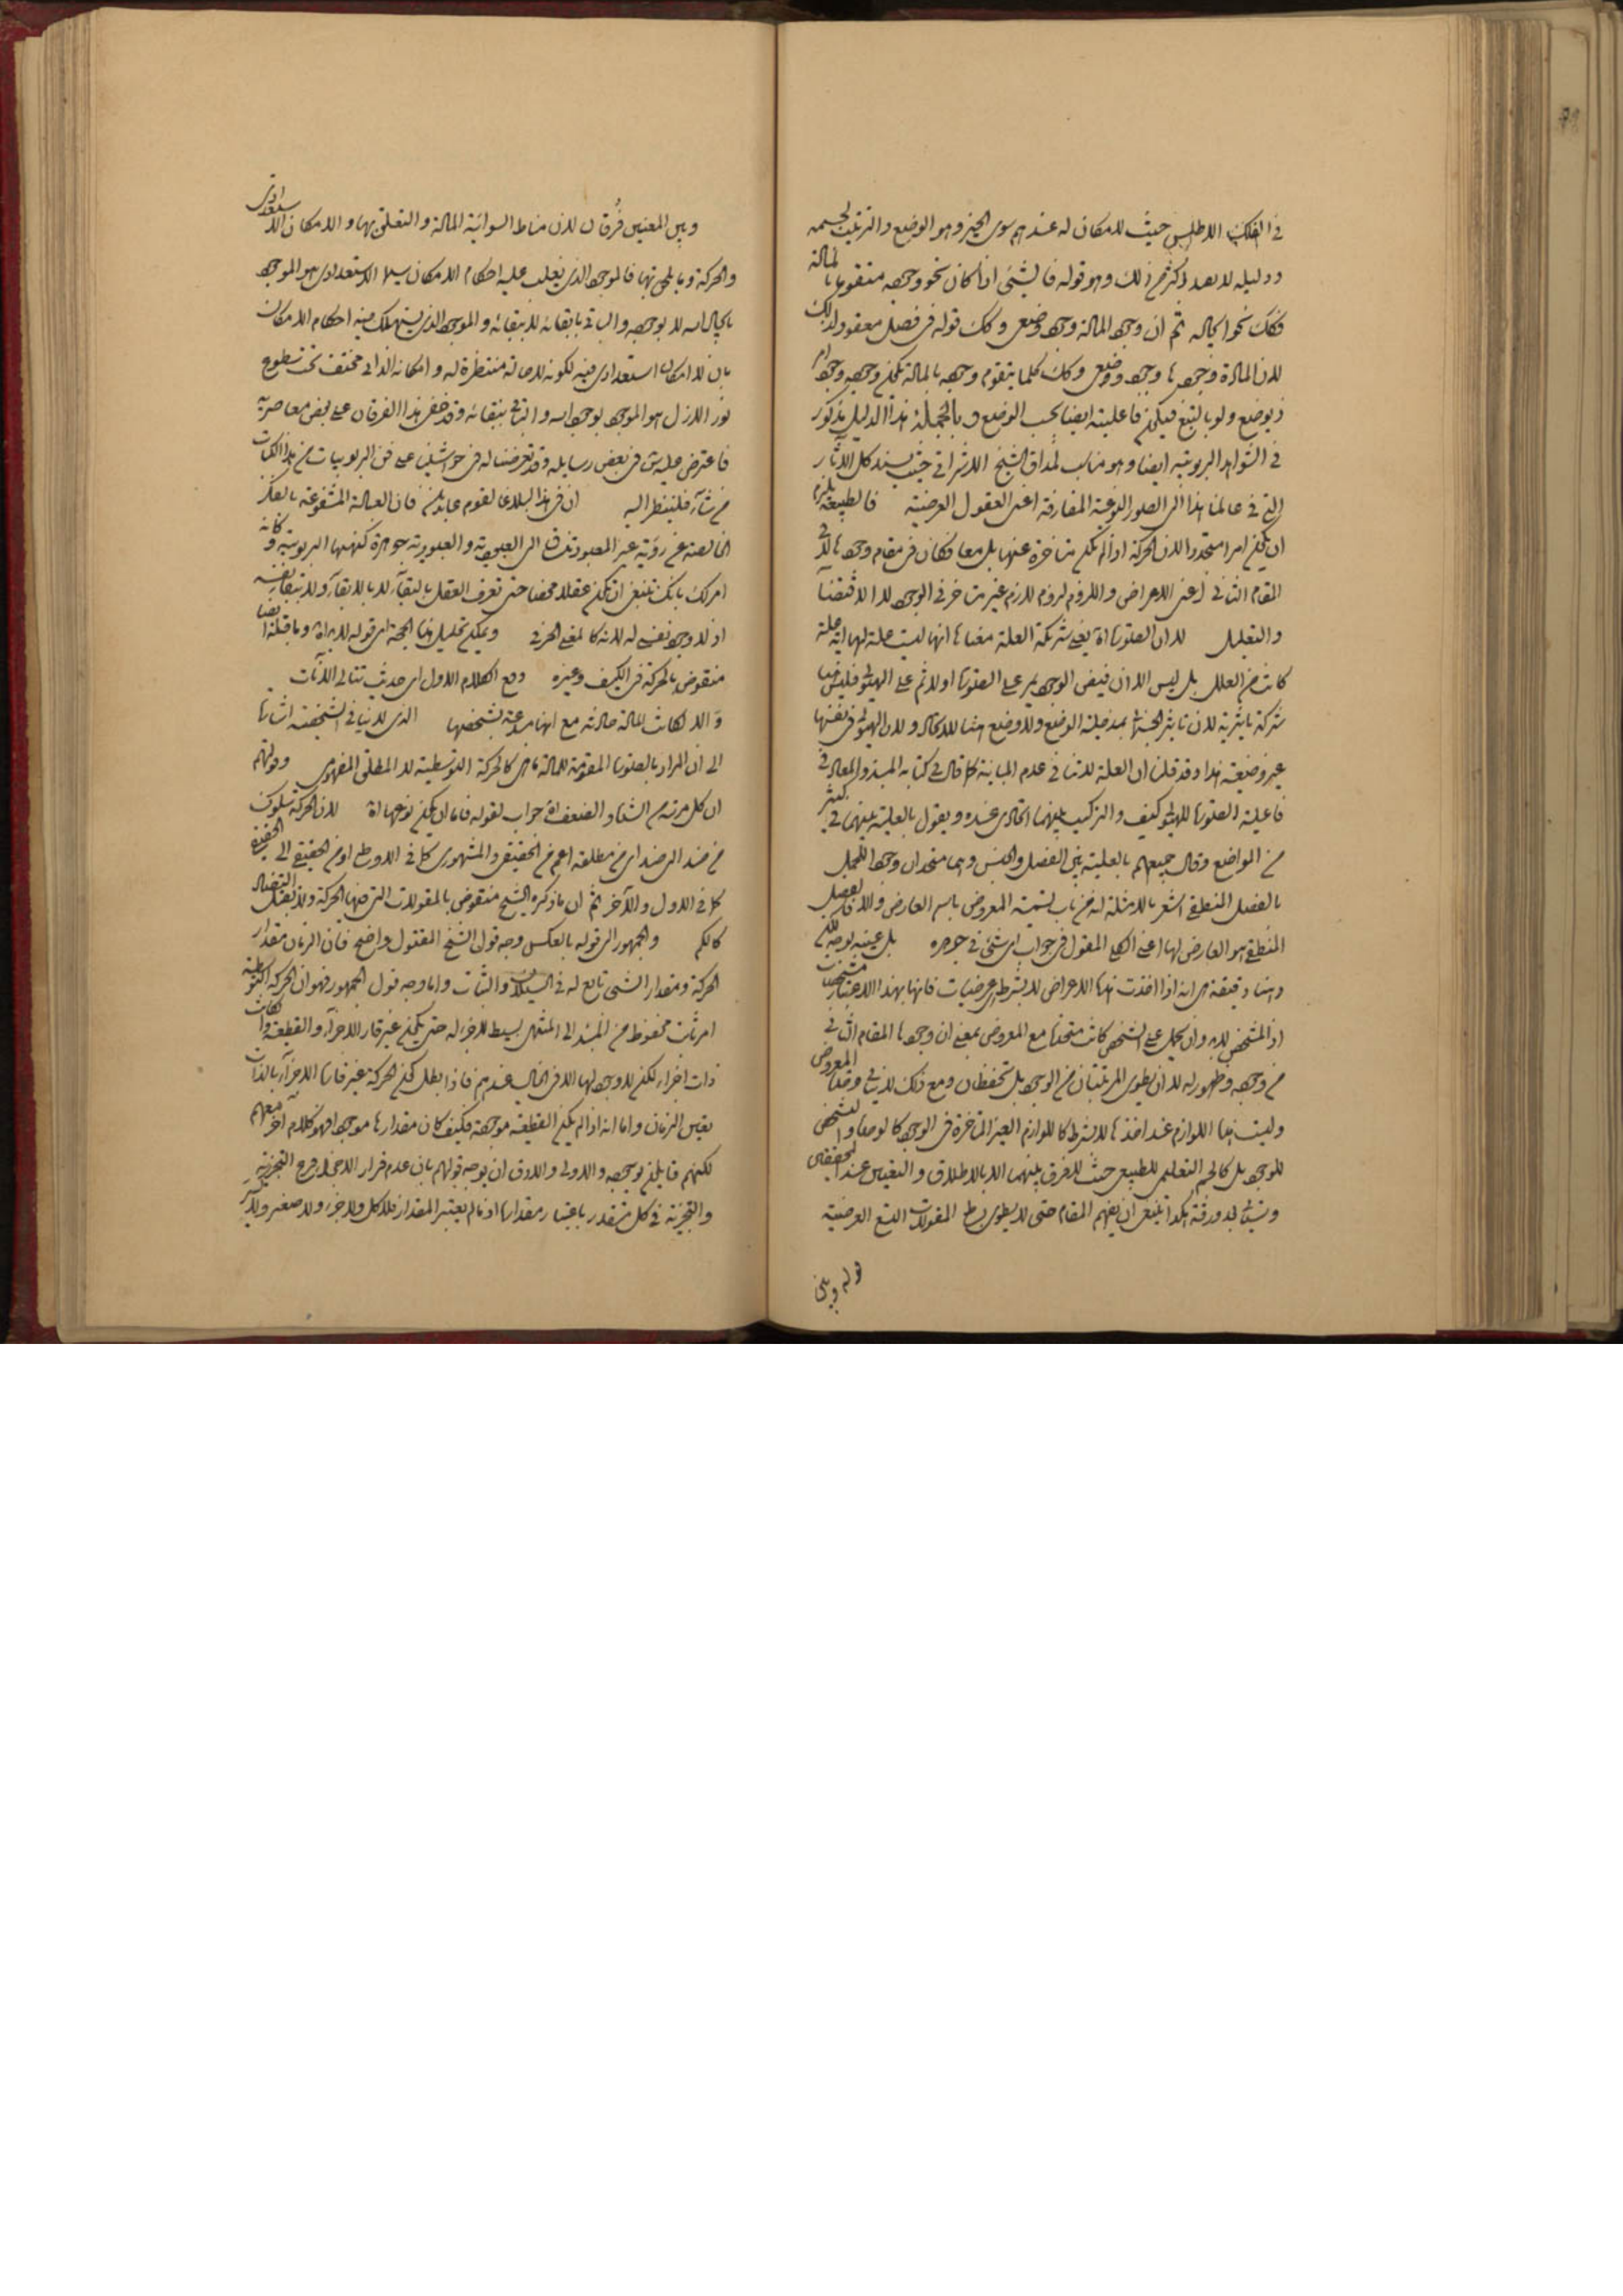 في الفلك الاطلس حيث لا مكان له عندهم سوى الحيز وهو الوضع والترتيب لجسمه
ودليله لا بعد اكثر من ذلك وهو قوله فالشيء اذا كان نحو وجوده متقوما بالمادة
فكك نحو ايجاده ثم ان وجود المادة وجود وضعي وكك قوله في فصل معقود لذلك
لان المادة وجودها وجود وضعي وكك كلما يتقوم وجوده بالمادة يكون وجوده وجود امر
ذي وضع ولو بالتبع فيكون فاعليته ايضا بحسب الوضع وبالجملة هذا الدليل مذكور
في الشواهد الربوبية ايضا وهو مناسب لمذاق الشيخ الاشراقي حيث يسند كل الآثار
التي في عالمنا هذا الى الصور النوعية المفارقة اعني العقول العرضية فالطبيعة يلزم
ان يكون امرا متجددا لان الحركة اذا لم يكن متاخرة عنها بل معا فكان في مقام وجودها لا في
المقام الثاني اعني الاعراض واللزوم لزوم لازم غير متاخر في الوجود لا الاقتضاء
والتعليل لا ان الصورة اه يعني شركة العلة معناها انها ليست علة لها اية علة
كانت من العلل بل ليس الا ان فيض الوجود يمر على الصورة اولا ثم على الهيولى فليس هنا
شركة تاثيرية لان تاثير الجسماني بمدخلية الوضع ولا وضع هنا للاتحاد ولان الهيولى في نفسها
غير وضعية هذا وقد قلنا ان العلة لا تنافي عدم المباينة كما قال في كتابه المبدء والمعاد في
فاعلية الصورة للهيولى كيف والتركيب بينهما اتحادي عنده ويقول بالعلية بينهما في كثير
من المواضع وقال جميعهم بالعلية بين الفصل والجنس وهما متحدان وجودا
بالفصل المنطقي اشعر بالامثلة انه من باب تسمية المعروض باسم العارض والا فالفصل
المنطقي هو العارض لها اعني الكلي المقول في جواب اي شيء في جوهره بل عينه بوجه
وهنا دقيقة هي انه اذا اخذت هذه الاعراض لا بشرط عرضيات فانها بهذا الاعتبار مشخصات
اذ المشخص لا بد وان يحمل على الشخص كانت متحدة مع المعروض بمعنى ان وجودها المقام الثاني
من وجوده وظهور له لا ان يطوى المرتبتان من الوجود بل تحفظان ومع ذلك المعروض
وليست هنا اللوازم عند اخذها لا بشرط كاللوازم الغير المتاخرة في الوجود كالوحدة والتشخص
للوجود بل كالجسم التعليمي للطبيعي حيث لا فرق بينهما الا بالاطلاق والتعين عند المحققين
هكذا ينبغي ان يفهم المقام حتى لا يطوى بساط المقولات التسع العرضية
قوله وبين
وبين المعنيين فرقان لان مناط السوائية المادة والتعلق بها والامكان الاستعدادي
والحركة وبالجملة فالموجود الذي يغلب عليه احكام الامكان سيما الاستعدادي هو الموجود
بايجاد الله لا بوجوده والباقي بابقائه لا ببقائه والموجود الذي يستهلك فيه احكام الامكان
بان لا امكان استعدادي فيه لكونه لا حالة منتظرة له وامكانه الذاتي مختف تحت سطوع
نور الازل هو الموجود بوجود الله والباقي ببقائه وقد خفى هذا الفرقان على بعض معاصريه
فاعترض عليه في بعض رسايله وقد تعرضنا له في حواشينا على فن الربوبيات من هذا الكتاب
من شاء فلينظر اليه ان في هذا لبلاغا لقوم عابدين فان العبادة المشفوعة بالفكر
الخالصة عن رؤية غير المعبود تسوق الى العبودية والعبودية جوهرة كنهها الربوبية وكانه
امرك بانك ينبغي ان تكون عقلا محضا حتى تعرف العقل بالبقاء لا بالابقاء ولا ببقائه بنفسه
اذ لا وجود نفسي له لانه كالمعنى الحرفي ويمكن تحليل هذه الحجة اي قوله لا يراد وما قبله ايضا
منقوض بالحركة في الكيف وغيره دفع الكلام الاول اي حديث تتالي الآنات
والا لكانت المادة حادثة مع انها مبدعة بشخصها الذي لا ينافي الشخصية اشارة
الى ان المراد بالصورة المقومة للمادة ما هي كالحركة التوسطية لا المطلق المفهومي وقولهم
ان كل مرتبة من الشدة والضعف اه جواب لقوله فاما ان يكون نوعها اه لان الحركة سلوك
من ضد الى ضد اي من مطلقه اعم من الحقيقي والمشهوري كما في الاوساط او من الحقيقي الى الحقيقي
كما في الاول والآخر ثم ان ما ذكره الشيخ منقوض بالمقولات التي فيها الحركة ولا يقبل التضاد
كالكم والجمهور الى قوله بالعكس وجه قول الشيخ المقتول واضح فان الزمان مقدار
الحركة ومقدار الشيء تابع له في السيلان والثبات واما وجه قول الجمهور فهو ان الحركة التوسطية
امر ثابت محفوظ من المبدء الى المنتهى بسيط لا جزء له حتى يكون غير قار الاجزاء والقطعية وان كانت
ذات اجزاء لكن لا وجود لها الا في الخيال عندهم فاذا بطل كون الحركة غير قارة الاجزاء بالذات
تعين الزمان واما انه اذا لم يكن القطعية موجودة فكيف كان مقدارها موجودا فهو كلام آخر معهم
لكنهم قايلين بوجوده والاولى والاوفق ان يوجه قولهم بان عدم قرار الاجزاء فرع التجزية
والتجزية في كل متقدر باعتبار مقداره اذ ما لم يعتبر المقدار فلا كل ولا جزء ولا صغير ولا كبير